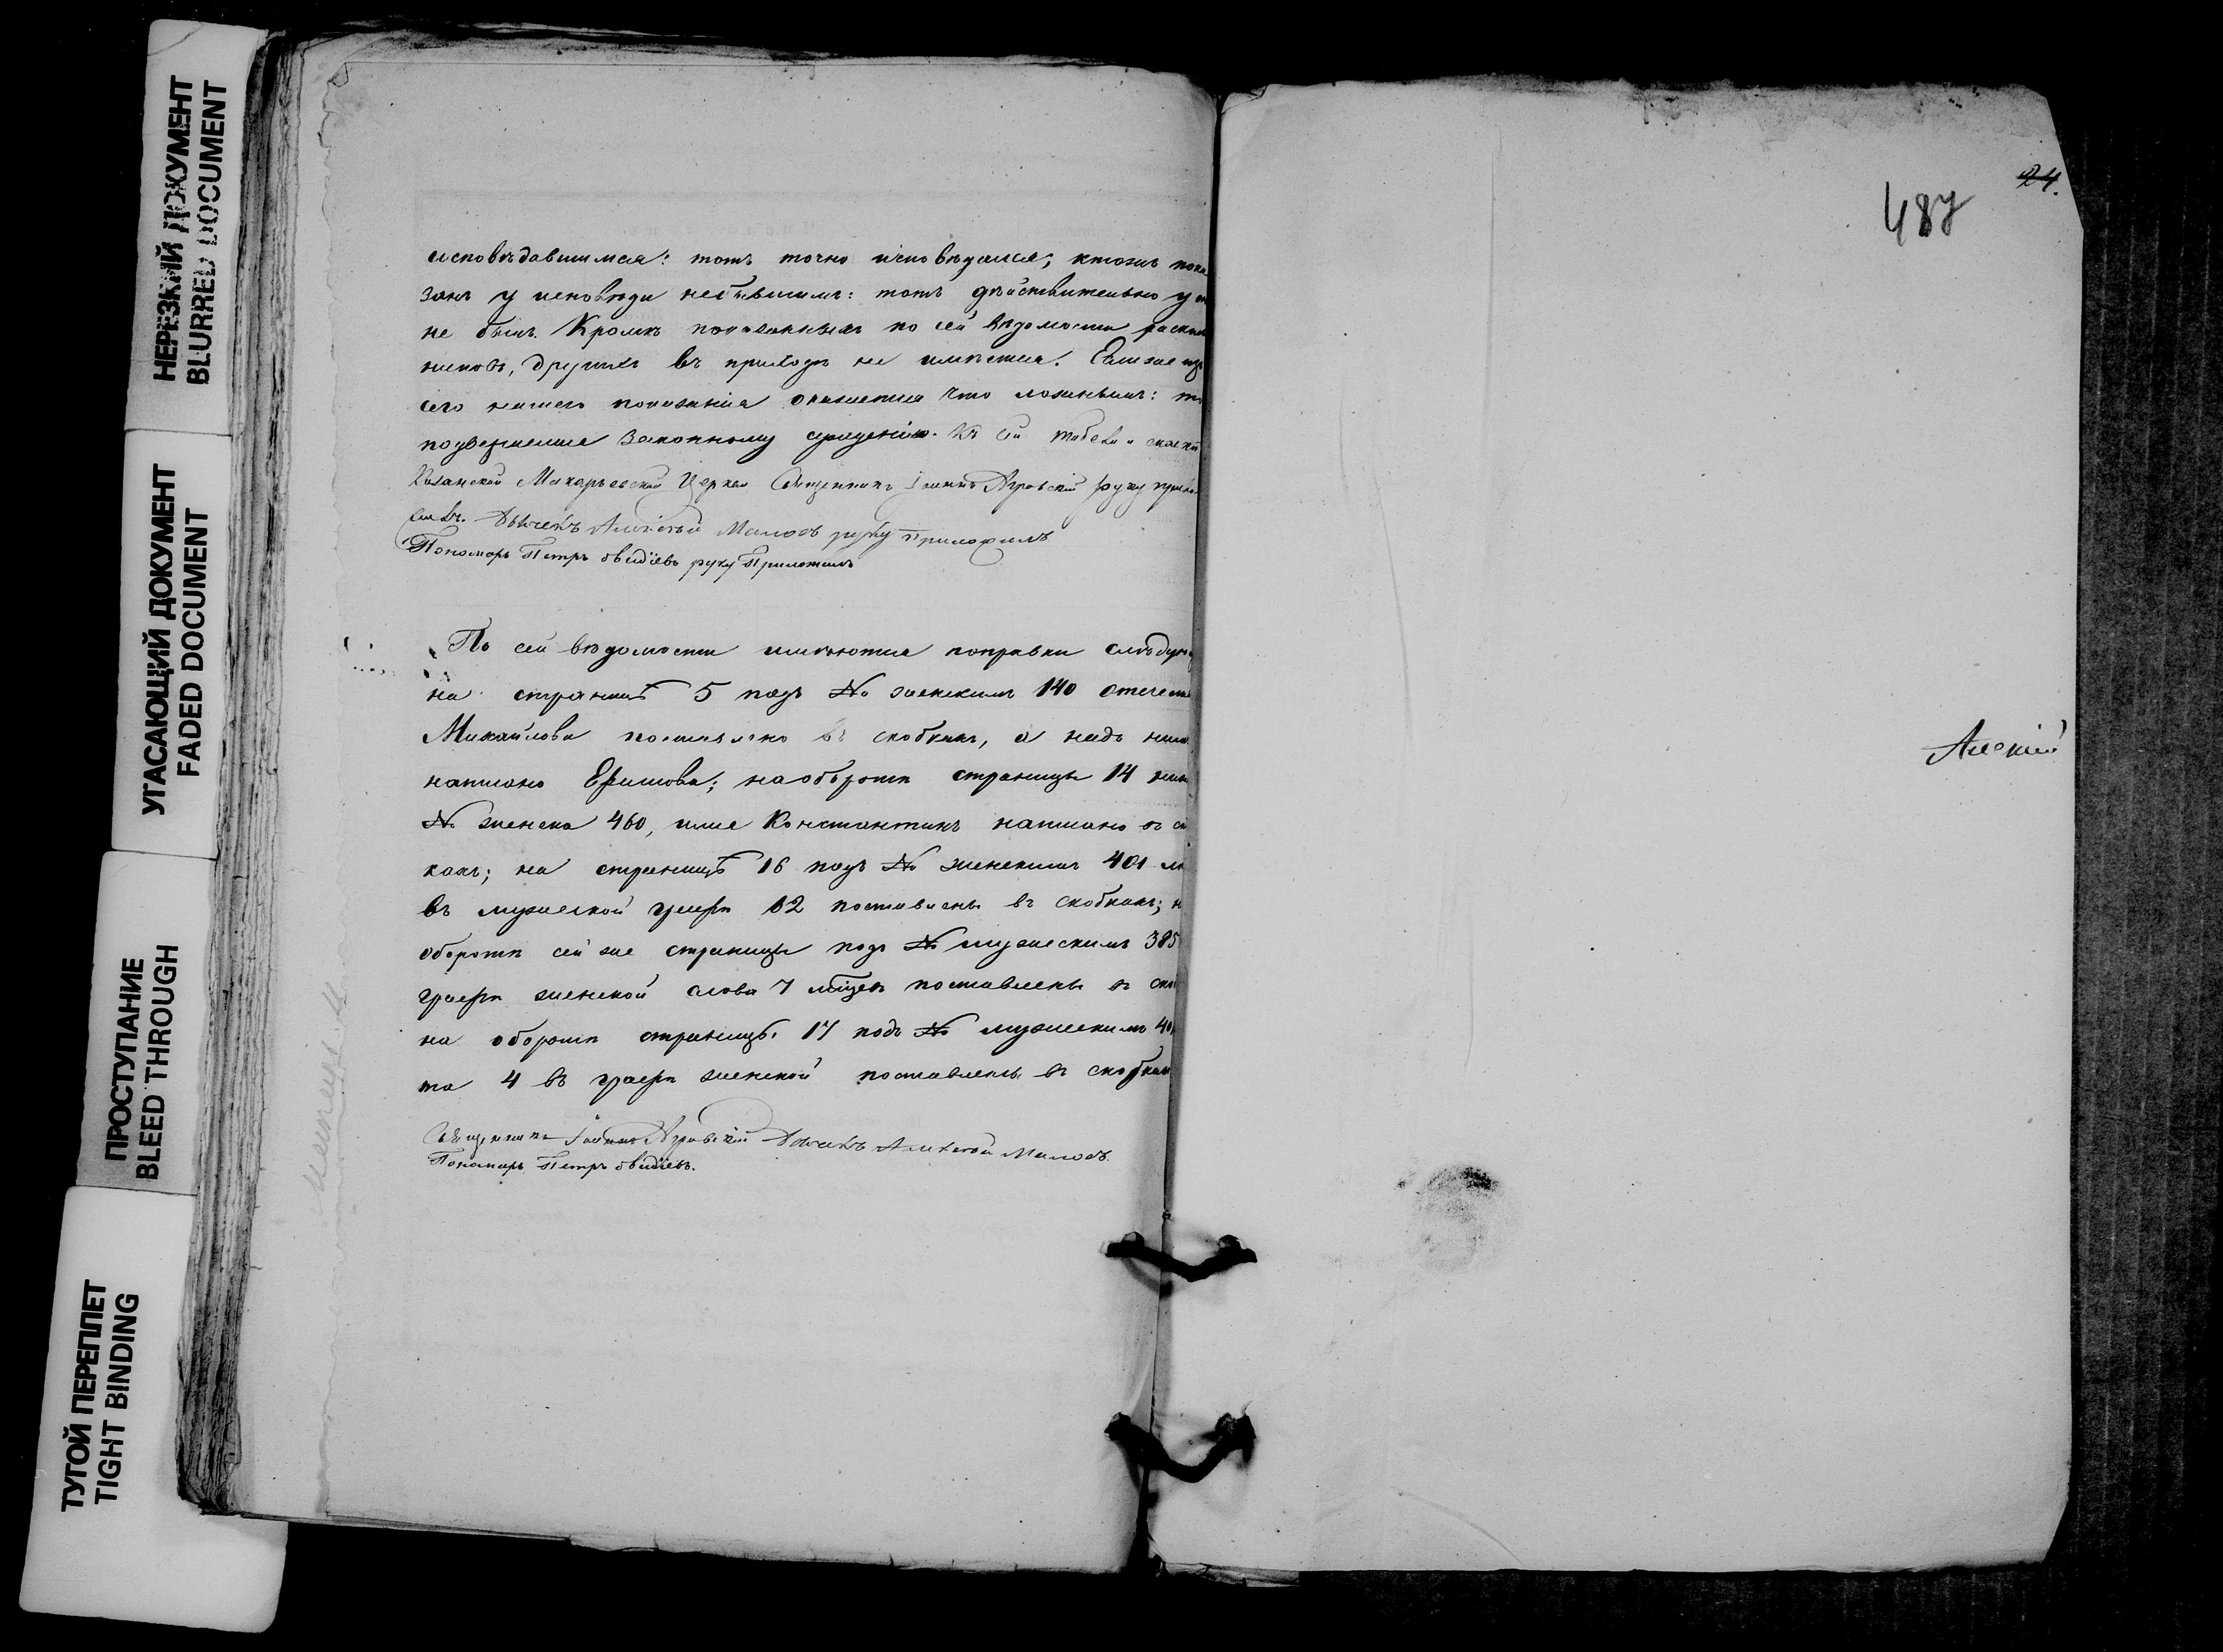 НЕРЕЗКИЙ ДОКУМЕНТ
BLURRED DOCUMENT
УГАСАЮЩИЙ ДОКУМЕНТ
FADED DOCUMENT
ПРОСТУПАНИЕ
BLEED THROUGH
ТУГОЙ ПЕРЕПЛЕТ
TIGHT BINDING
исповѣдавшимся: тотъ точно исповѣдался; ктожъ пока
занъ у исповѣди небывшимъ: тотъ дѣйствительно у
не былъ. Кромѣ показанныхъ по сей вѣдомости раскол
никовъ, другихъ въ приходѣ не имѣется. Еслиже
сего нашего показанія окажется что ложнымъ: то
подвергаемся законному сужденію. Къ сей табели и сказкѣ
Казанской Макарьевской Церкви Священникъ Іоаннъ руку прило
Дьячекъ Алексѣй Маловъ руку приложилъ
Пономарь Петръ Овидіевъ руку приложилъ
По сей вѣдомости имѣются поправки слѣдую
на страницѣ 5 подъ № женскимъ 140 отечест
Михайлова поставлено въ скобкахъ, а надъ ним
написано Ефимова; на оборотѣ страницы 14
№ женска 460, имя Константинъ написано въ ск
кахъ; на страницѣ 16 подъ № женскимъ 401
въ мужеской графѣ 12 поставлены въ скобкахъ; н
оборотѣ сей же страницы подъ № мужескимъ 385
графѣ женской слова 7 мѣсяц поставлены въ ско
на оборотѣ страницы 17 подъ № мужескимъ 40
та 4 въ графѣ женской поставлены въ скобкахъ
Священникъ Іоаннъ Дьячекъ Алексѣй Маловъ
Пономарь Петръ Овидіевъ.
24.
487
Алексій